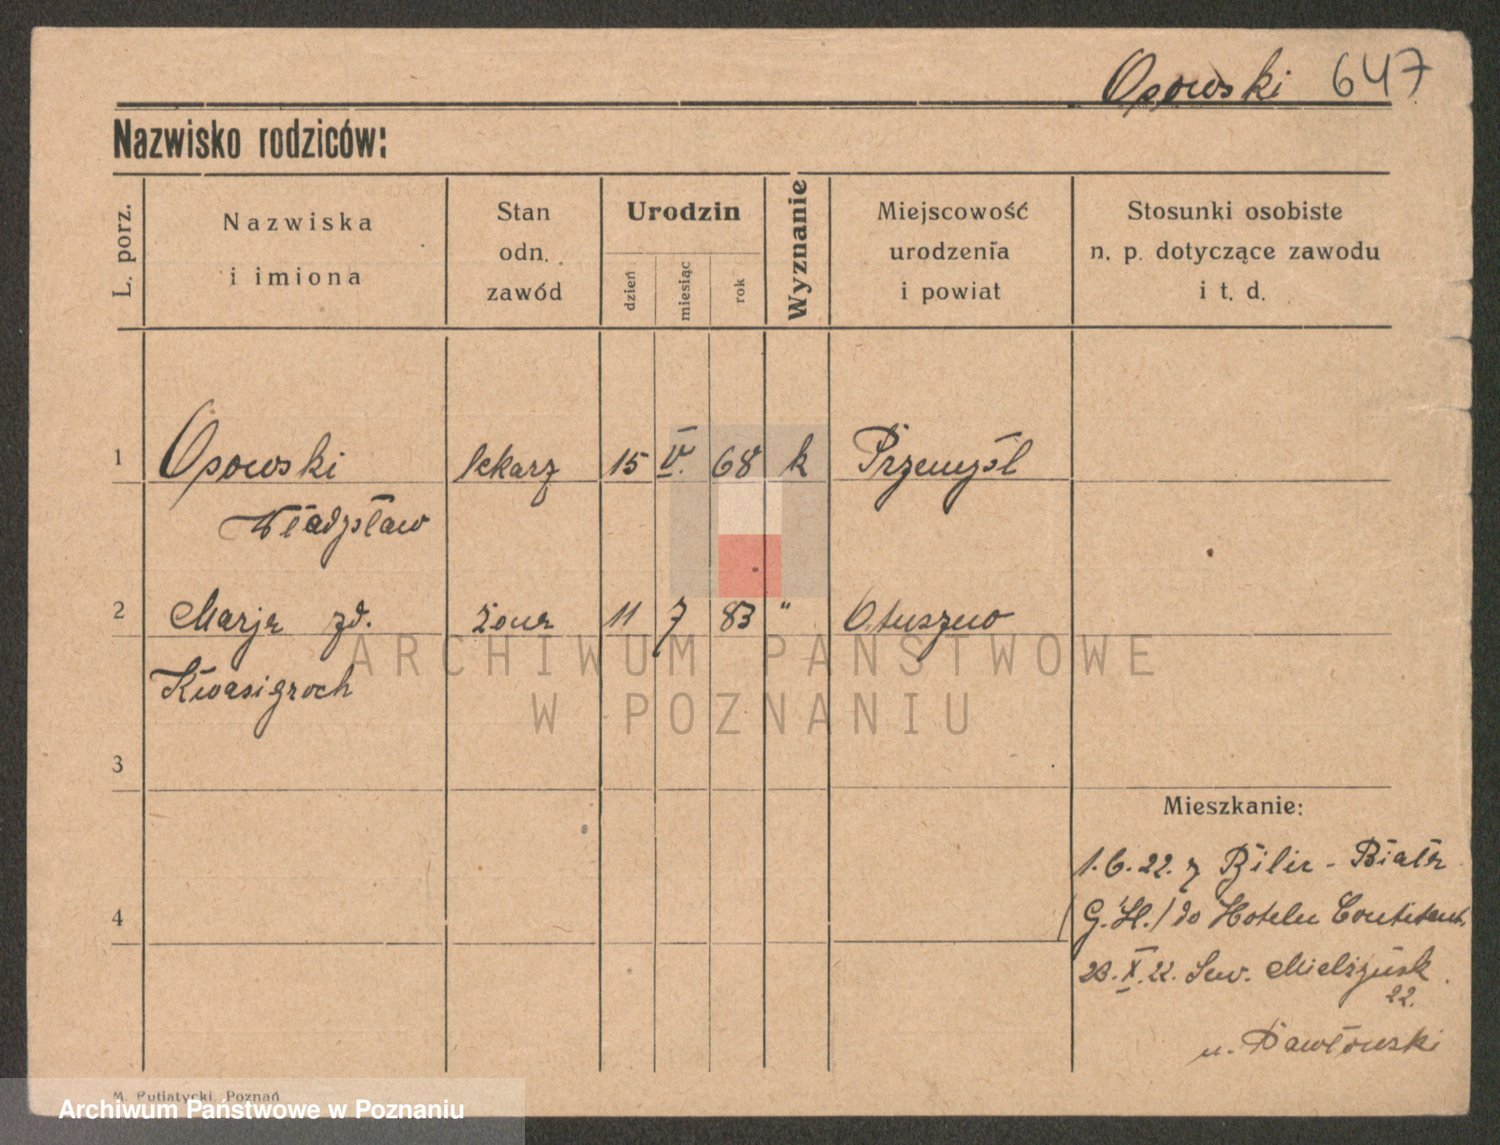 Osowski 647
Nazwisko rodziców:
L. porz.
Nazwiska
i imiona
Stan
odn.
zawód
Urodzin
dzień
miesiąc
rok
Wyznanie
Miejscowość
urodzenia
i powiat
Stosunki osobiste
n. p. dotyczące zawodu
i t. d.
1 Osowski lekarz 15 V. 68 k Przemyśl
Władysław
2 Marja zd. żona 11 7 83 " Otuszwo
Kwasigroch
ARCHIWUM PAŃSTWOWE
W POZNANIU
3
Mieszkanie:
1.6.22. z - Biała
4
(G. Śl.) do Hotelu
23.X.22. Sew. Mielżyńsk.
22.
u. Pawłowski
M. Putiatycki, Poznań
Archiwum Państwowe w Poznaniu